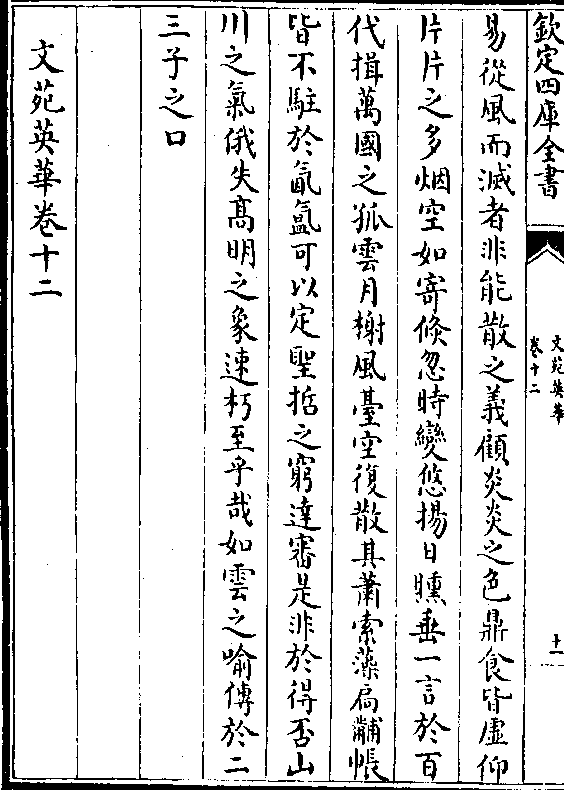 欽定四庫全書
文苑英華
卷十二
十一
易從風而滅者非能散之義顧炎炎之色鼎食皆虛仰
片片之多烟空如寄倐忽時變悠揚日曛垂一言於百
代揖萬國之孤雲月榭風臺空復散其蕭索藻扃黼帳
皆不駐於氤氲可以定聖哲之窮達審是非於得否山
川之氣俄失髙明之象速朽至乎哉如雲之喻傳於二
三子之口
文苑英華卷十二